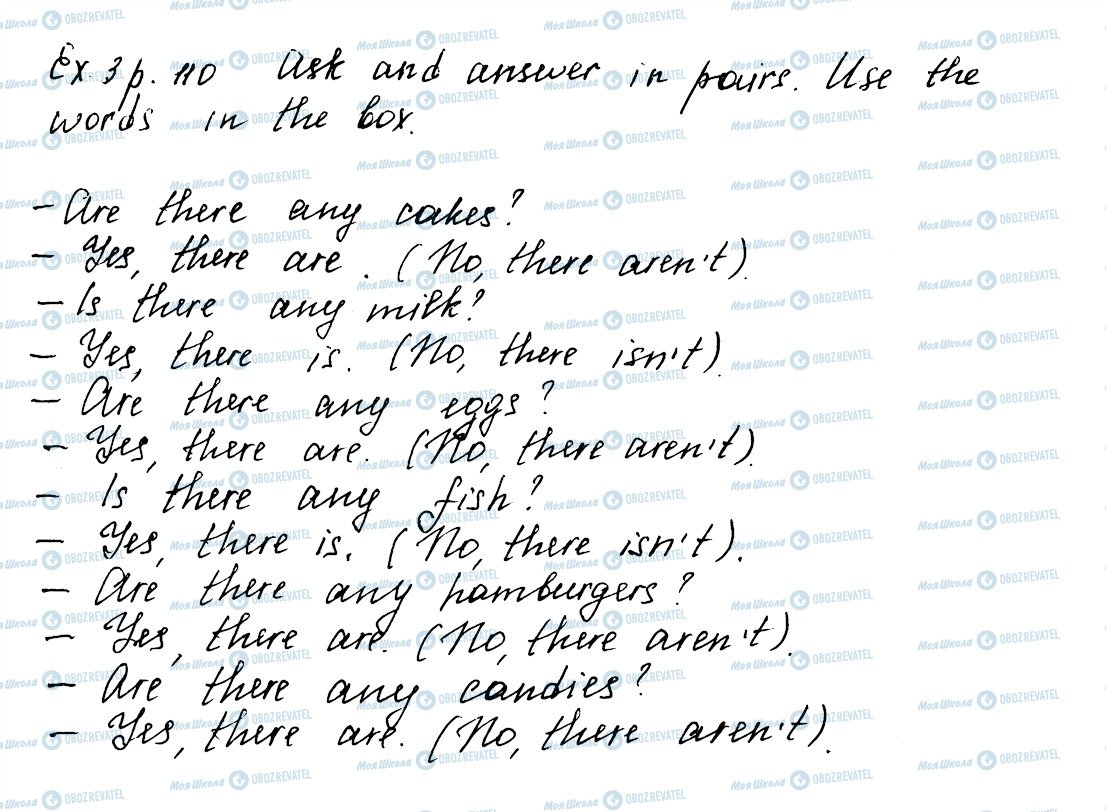 Ex. 3 p. 110 Ask and answer in pairs. Use the
words in the box.
– Are there any cakes?
– Yes, there are. (No, there aren't).
– Is there any milk?
– Yes, there is. (No, there isn't).
– Are there any eggs?
– Yes, there are. (No, there aren't).
– Is there any fish?
– Yes, there is. (No, there isn't).
– Are there any hamburgers?
– Yes, there are. (No, there aren't).
– Are there any candies?
– Yes, there are. (No, there aren't).
Моя Школа OBOZREVATEL